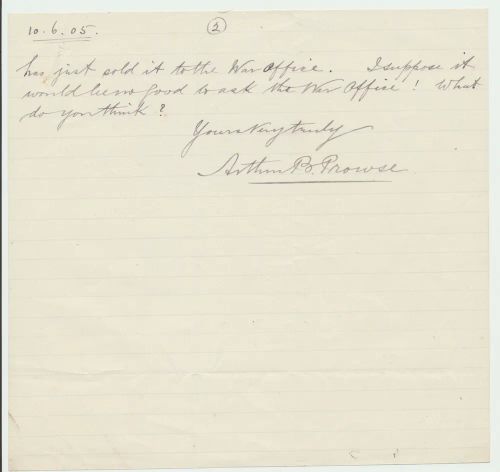 10.6.05. (2)
has just sold it to the War Office. I suppose it
would be no good to ask the War Office! What
do you think?
Yours very truly
Arthur B. Prowse